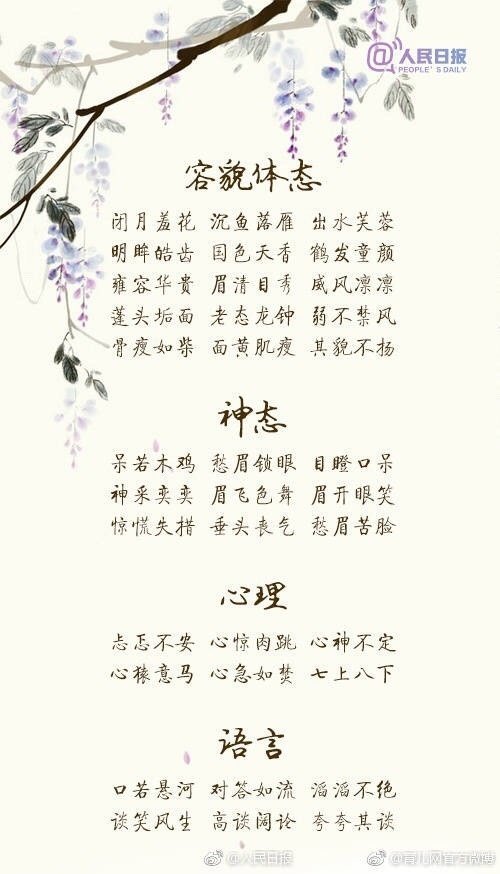 @人民日报
PEOPLE'S DAILY
容貌体态
闭月羞花 沉鱼落雁 出水芙蓉
明眸皓齿 国色天香 鹤发童颜
雍容华贵 眉清目秀 威风凛凛
蓬头垢面 老态龙钟 弱不禁风
骨瘦如柴 面黄肌瘦 其貌不扬
神态
呆若木鸡 愁眉锁眼 目瞪口呆
神采奕奕 眉飞色舞 眉开眼笑
惊慌失措 垂头丧气 愁眉苦脸
心理
忐忑不安 心惊肉跳 心神不定
心猿意马 心急如焚 七上八下
语言
口若悬河 对答如流 滔滔不绝
谈笑风生 高谈阔论 夸夸其谈
@人民日报
@育儿网官方微博